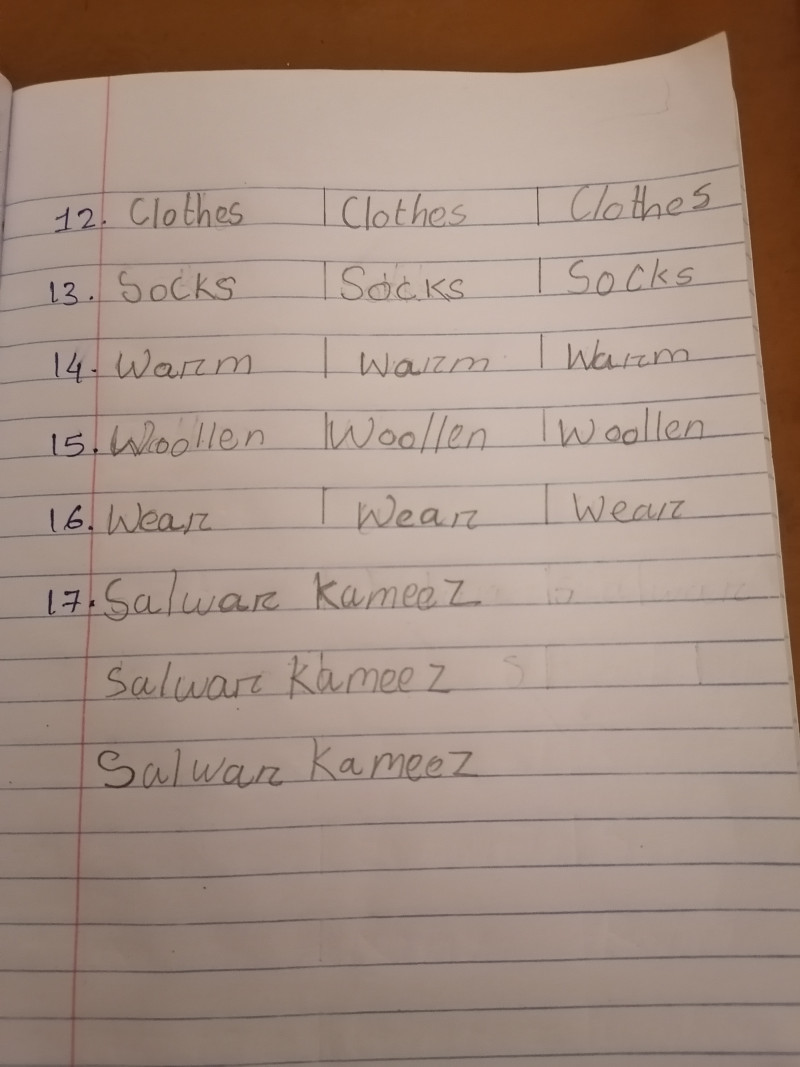 12. Clothes | Clothes | Clothes
13. Socks | Socks | Socks
14. Warm | Warm | Warm
15. Woollen | Woollen | Woollen
16. Wear | Wear | Wear
17. Salwar Kameez
Salwar Kameez
Salwar Kameez